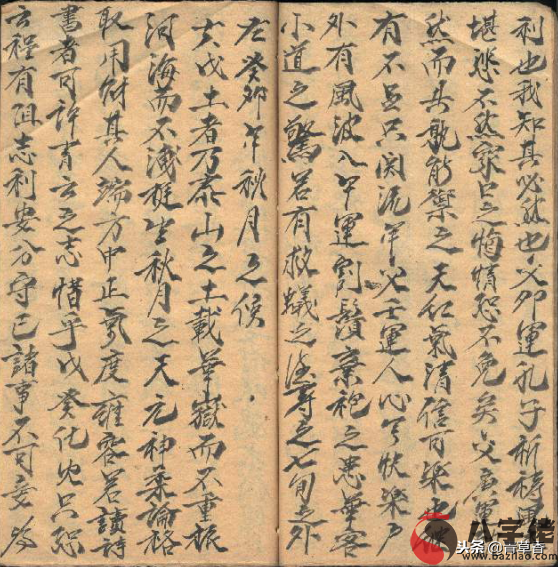 利也我知其必然也必卯運孔子祈禱
堪悲不然家口之悔情恐不免矣父
然而其孰能禦之天仁氣清信可樂也
有不足只因流年必壬運人心可快樂
外有風波入午運割鬚棄袍之患
小道之驚若有救蟻之 壽之七旬之外
在癸卯年秋月之候
夫戊土者乃泰山之土載華嶽而不重振
河海而不洩挺生秋月之天元神柔論格
取用財其人端方中正氣度雍容若讀詩
書者可許青云之志惜乎戊癸化 只恐
云程有阻志利安分守己諸事不可妄為
八字佬
www.bazilao.com
头条@青草香